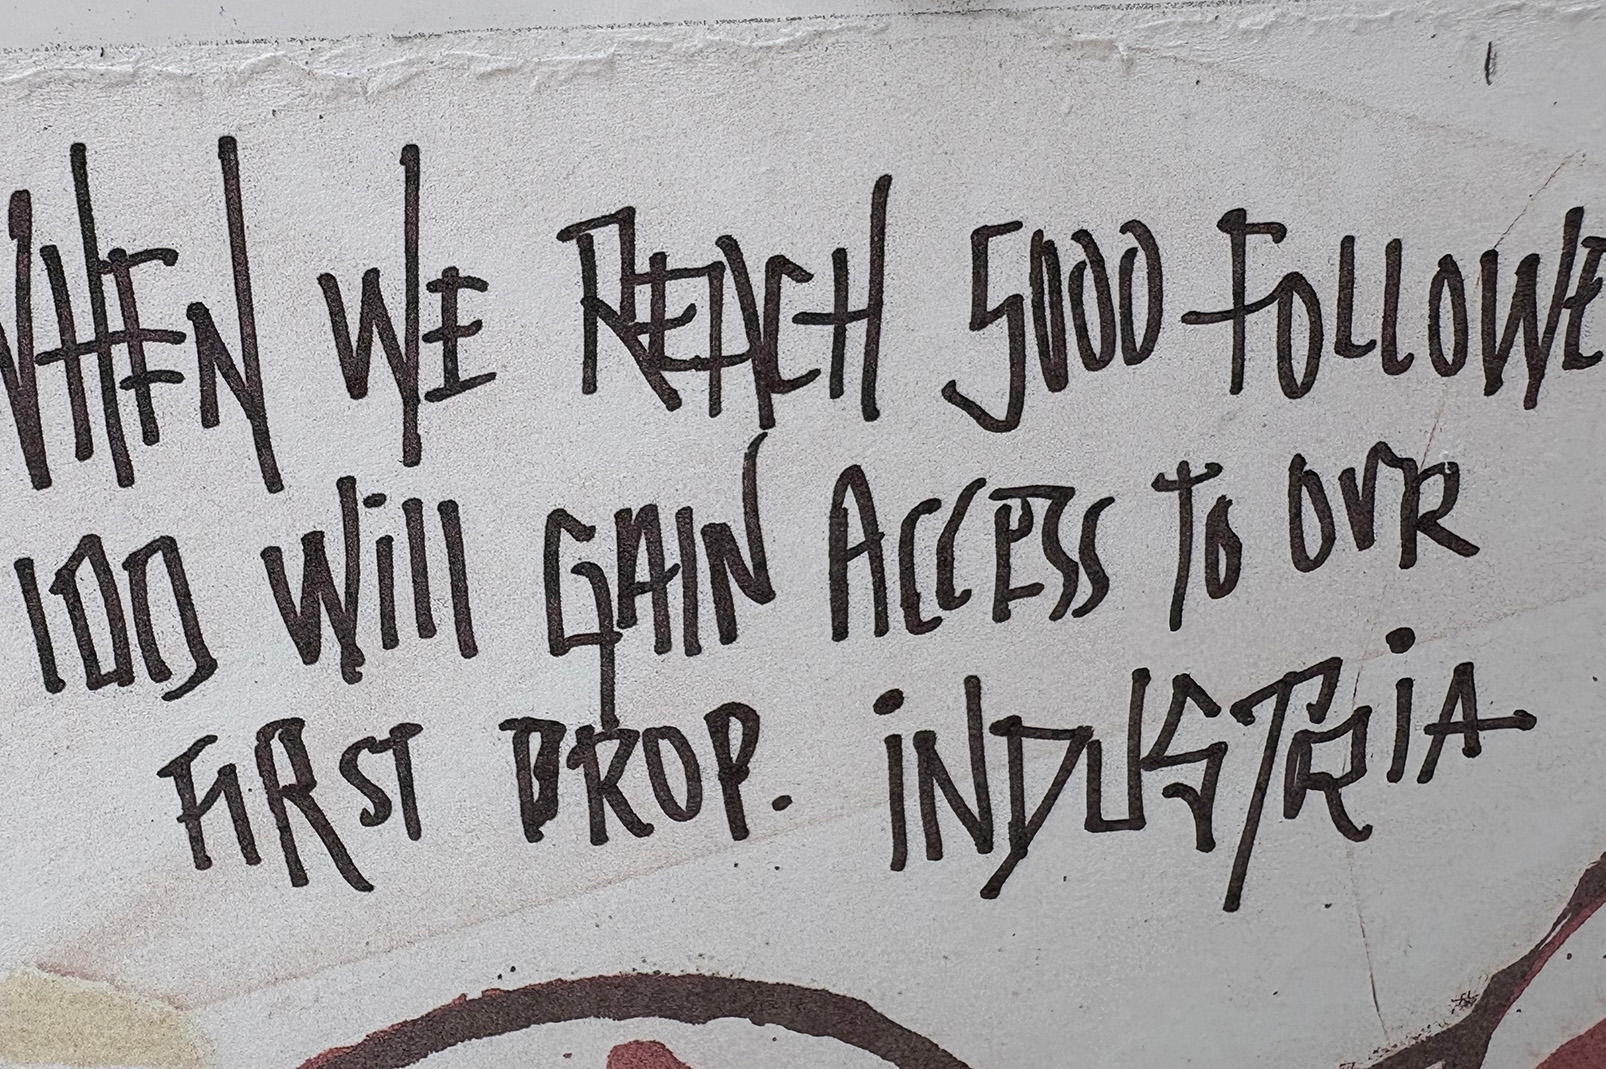 WHEN WE REACH 5000 FOLLOWE
100 Will GAIN ACCESS TO OUR
FIRST DROP. iNDUSTRiA